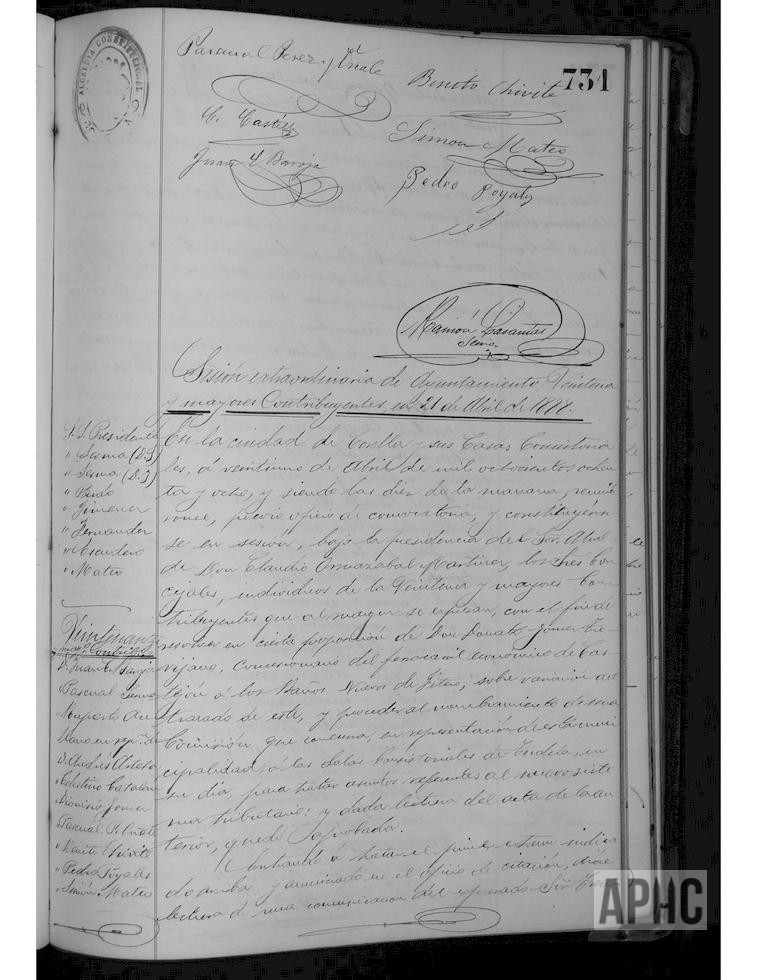 ALCALDIA CONSTITUCIONAL
731
Pascual Perez y Oñate
Benito Chivite
C. Castés
Simon Mateo
Juan
Pedro Poyales
Ramón
Srio.
Sesión extraordinaria de Ayuntamiento, Veintena
y mayores Contribuyentes en 21 de Abril de 1888.
S. S. Presidente
" Sesma (D. J)
" Sesma (D. J)
" Jimenez
" Fernandez
" Escudero
" Mateo
Veintenantes
may.s Contrib.s
Pascual
D. Andrés
Celestino Catalan
" Dionisio Gomez
" Pascual P. Oñate
" Benito Chivite
" Pedro Poyales
" Simón Mateo
En la ciudad de Corella y sus Casas Consistoria-
les, a veintiuno de Abril de mil ochocientos ochen-
ta y ocho, y siendo las diez de la mañana, reunié-
ronse, previo oficio de convocatoria, y constituyeron-
se en sesion, bajo la presidencia del Sor. Alcal-
de Don Claudio Ormazabal y Martinez, los Sres Con-
cejales, individuos de la Veintena y mayores Con-
tribuyentes que al margen se expresan, con el fin de
resolver en cierta proposición de Don Donato Gomez Tre-
vijano, concesionario del ferrocarril económico de Cas-
tejón á los Baños Nuevos de Fitero, sobre variación del
trazado de este, y proceder al nombramiento de una
Comisión que concurra, en representación de esta muni-
cipalidad, á las Salas Consistoriales de Tudela, en
su dia, para tratar asuntos referentes al nuevo siste-
ma tributario: y dada lectura del acta de la an-
terior, quedó aprobada.
Entrando á tratar el primer extremo indica-
do arriba, y anunciado en el oficio de citación, diose
lectura de una comunicación del expresado Sor
APHC